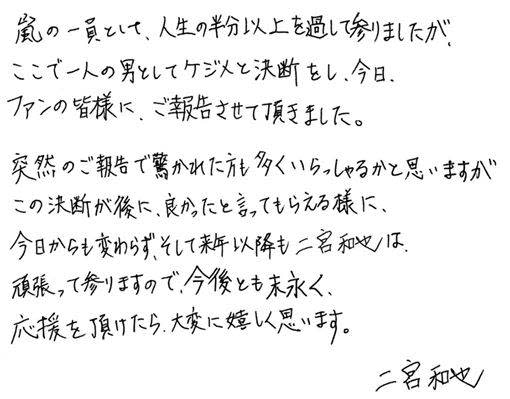 嵐の一員として、人生の半分以上を過して参りましたが、
ここで一人の男としてケジメと決断をし、今日、
ファンの皆様に、ご報告させて頂きました。
突然のご報告で驚かれた方も多くいらっしゃるかと思いますが
この決断が後に、良かったと言ってもらえる様に、
今日からも変わらず、そして来年以降も二宮和也は、
頑張って参りますので、今後とも末永く、
応援を頂けたら、大変に嬉しく思います。
二宮和也